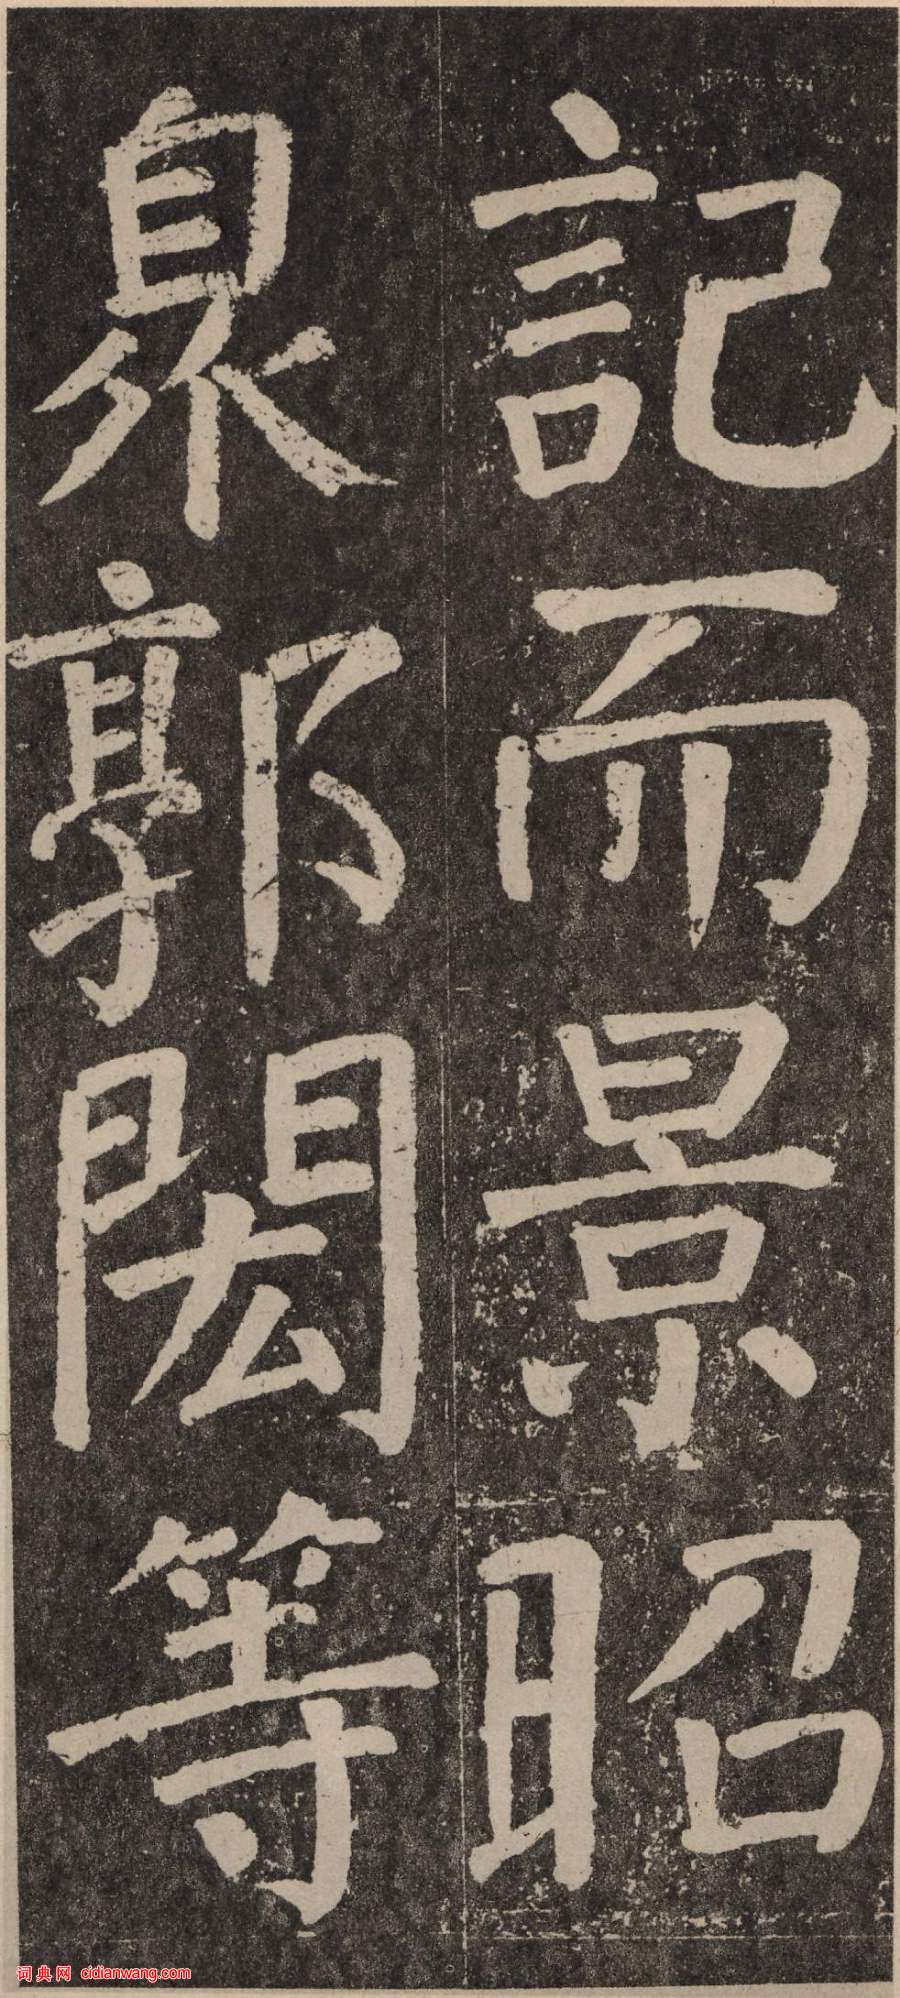 記而景昭
泉郭閎等
词典网 cidianwang.com